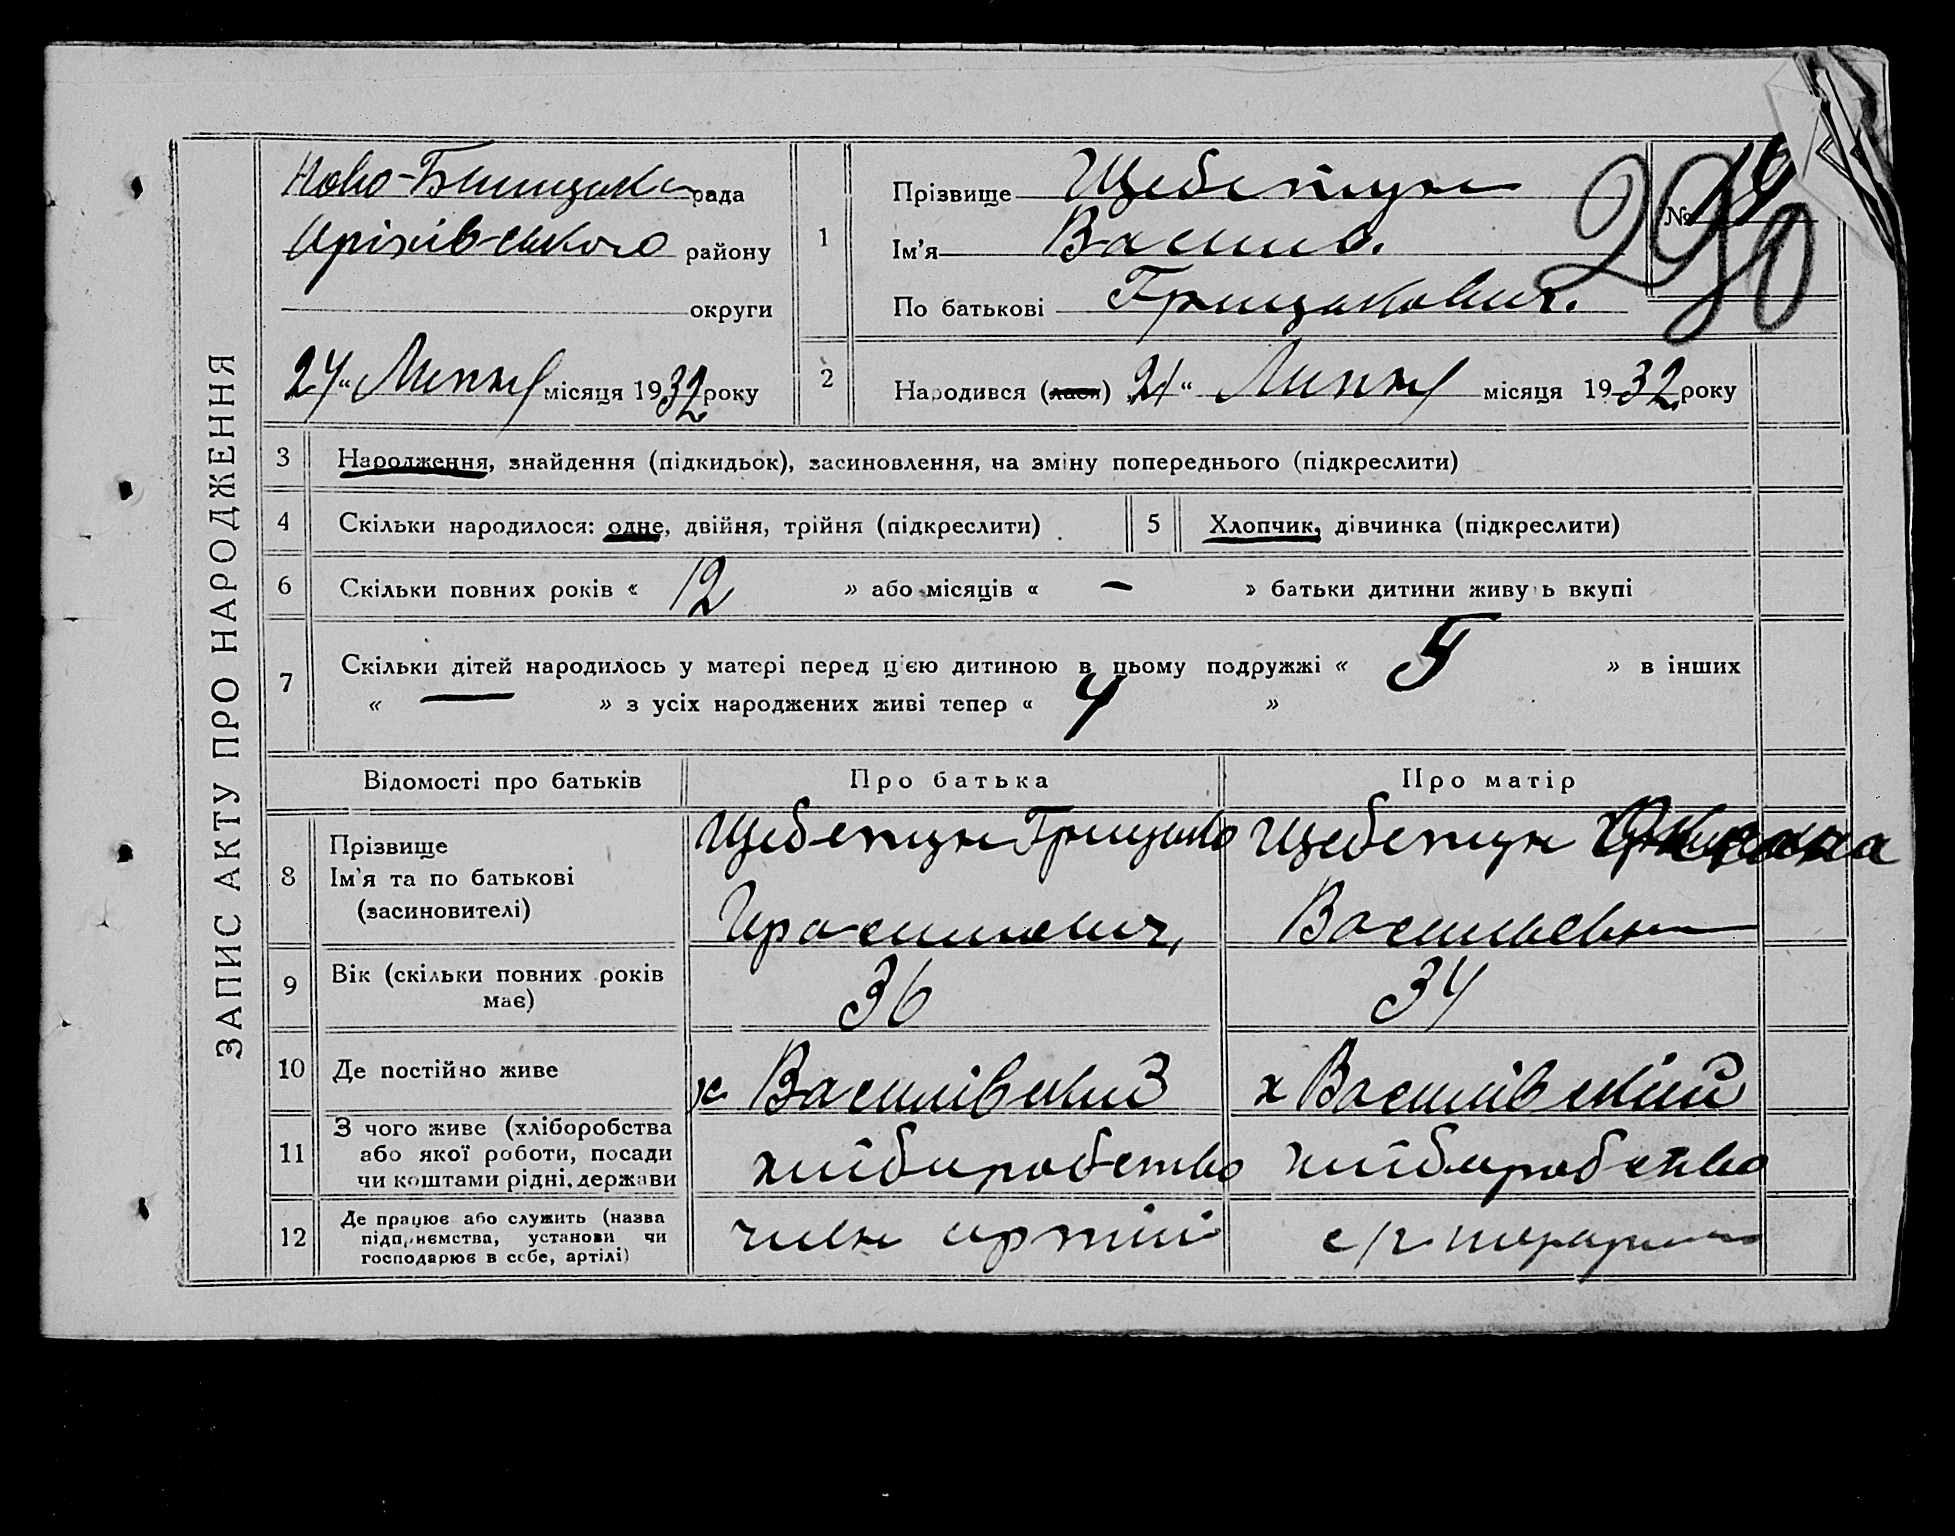 ЗАПИС АКТУ ПРО НАРОДЖЕННЯ
рада
району
округи
24 " Липня місяця 1932 року
1
Прізвище Щебетун
Ім'я Василь.
По батькові Грицькович.
№
290
2
Народився (лася) 21 " Липня місяця 1932 року
3 Народження, знайдення (підкидьок), засиновлення, на зміну попереднього (підкреслити)
4 Скільки народилося: одне, двійня, трійня (підкреслити)
5 Хлопчик, дівчинка (підкреслити)
6 Скільки повних років « 12 » або місяців « – » батьки дитини живуть вкупі
7 Скільки дітей народилось у матері перед ц'єю дитиною в цьому подружжі « 5 » в інших
« — » з усіх народжених живі тепер « 4 »
Відомості про батьків Про батька Про матір
8
Прізвище
Ім'я та по батькові
(засиновителі)
Щебетун Грицько
Щебетун
Васильевна
9 Вік (скільки повних років
має)
36 34
10 Де постійно живе х Василівский х Василівский
11
З чого живе (хліборобства
або якої роботи, посади
чи коштами рідні, держави
хліборобство хліборобство
12
Де працює або служить (назва
підприємства, установи чи
господарює в себе, артілі)
член артілі